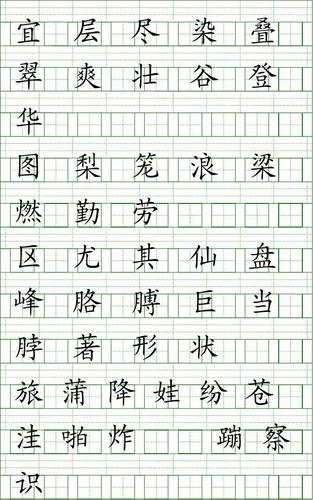 宜 层 尽 染 叠
翠 爽 壮 谷 登
华
图 梨 笼 浪 梁
燃 勤 劳
区 尤 其 仙 盘
峰 胳 膊 巨 当
脖 著 形 状
旅 蒲 降 娃 纷 苍
洼 啪 炸 蹦 察
识